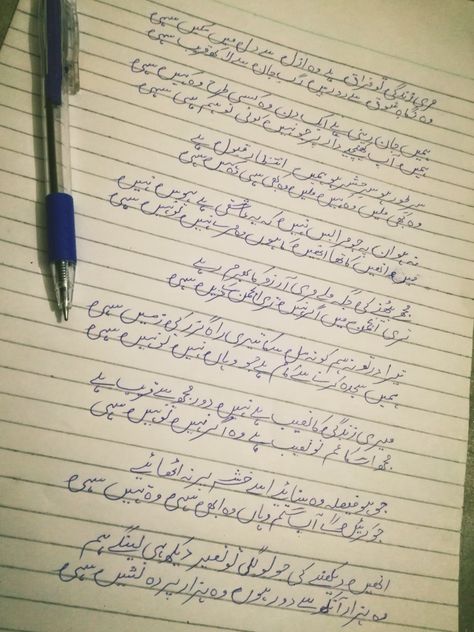 مری زندگی تو فراق ہے وہ ازل سے دل میں مکیں سہی
وہ نگاہ شوق سے دور ہیں رگ جاں سے لاکھ قریب سہی
ہمیں جان دینی ہے ایک دن وہ کسی طرح وہ کہیں سہی
ہمیں آپ کھینچیے دار پر جو نہیں کوئی تو ہم ہی سہی
سر طور ہو سر حشر ہو ہمیں انتظار قبول ہے
وہ کبھی ملیں وہ کہیں ملیں وہ کبھی سہی وہ کہیں سہی
نہ ہو ان پہ جو مرا بس نہیں کہ یہ عاشقی ہے ہوس نہیں
میں انھیں کا تھا میں انھیں کا ہوں وہ مرے نہیں تو نہیں سہی
مجھے بیٹھنے کی جگہ ملے مری آرزو کا بھرم رہے
تری انجمن میں اگر نہیں تری انجمن کے قریں سہی
تیرا در تو نہ ہم کو مل سکا تیری راہگزر کی زمیں سہی
ہمیں سجدہ کرنے سے کام ہے جو وہاں نہیں تو نہیں سہی
میری زندگی کا نصیب ہے نہیں دور مجھ سے قریب ہے
مجھے اس کا غم تو نصیب ہے وہ اگر نہیں تو نہیں سہی
جو ہو فیصلہ وہ سنایئے اسے حشر پر نہ اٹھایئے
جو کریں گے آپ ستم وہاں وہ ابھی سہی وہ یہیں سہی
انھیں دیکھنے کی جو لو لگی تو نصیر دیکھ ہی لینگے ہم
وہ ہزار آنکھ سے دور ہوں وہ ہزار پردہ نشیں سہی